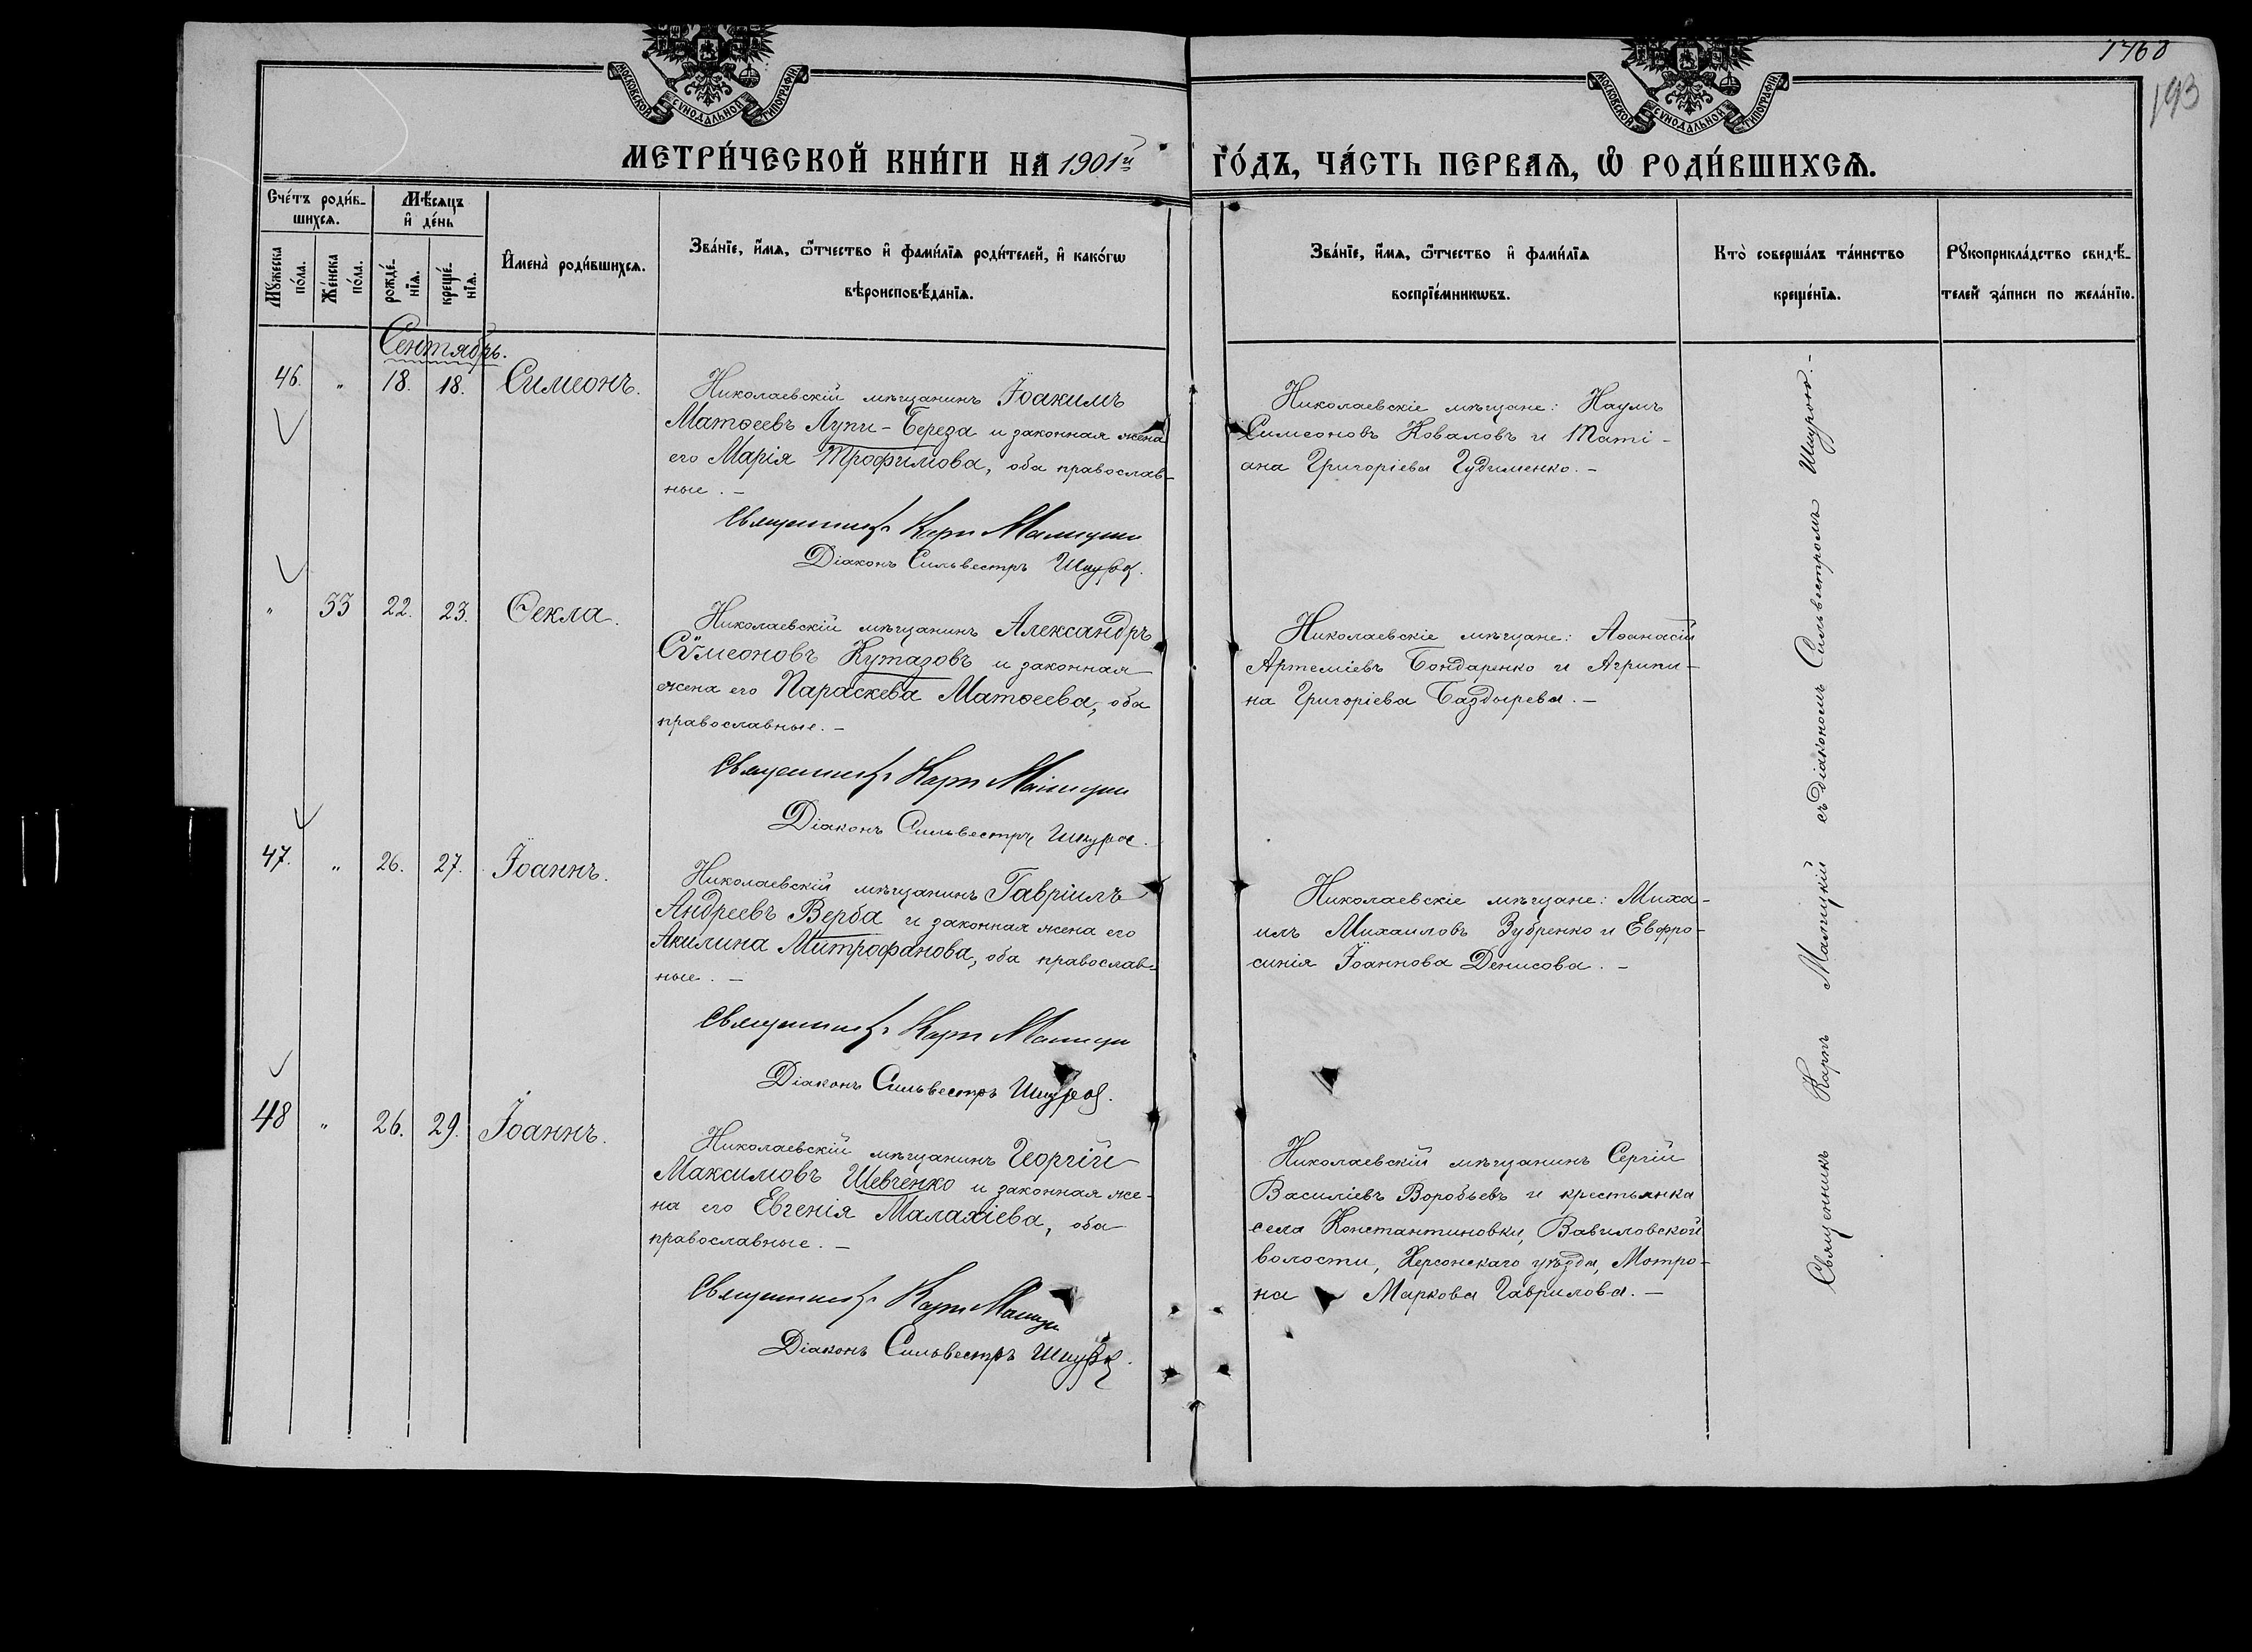 МОСКОВСКОЙ СѴНОДАЛЬНОЙ ТИПОГРАФІИ
МОСКОВСКОЙ СѴНОДАЛЬНОЙ ТИПОГРАФІИ
1468
193
МЕТРИ́ЧЕСКОЙ КНИ́ГИ НА 1901й
ГО́ДЪ, ЧА́СТЬ ПЕРВАѦ, Ѿ РОДИ́ВШИХСѦ.
Сче́тъ роди́в-
шихсѧ.
Мѣ́сяцъ
и҆ де́нь
Мꙋ́жеска
по́ла.
Же́нска
по́ла.
рожде́-
нїѧ.
креще́-
нїѧ.
И҆мена̀ роди́вшихсѧ.
Зва́нїе, и҆́мѧ, ѻ҆́тчество и҆ фами́лїѧ роди́телей, и҆ како́гѡ
вѣроисповѣ́данїѧ.
Зва́нїе, и҆́мѧ, ѻ҆́тчество и҆ фами́лїѧ
воспрїе́мникѡвъ.
Кто̀ соверша́лъ та́инство
креще́нїѧ.
Рꙋкоприкла́дство свидѣ́-
телей за́писи по жела́нїю.
Сентябрь.
46. " 18. 18. Симеонъ.
Николаевскій мѣщанинъ Іоакимъ
Матѳеевъ Лупи-Береза и законная жена
его Марія Трофимова, оба православ-
ные. —
Священникъ Карп Малицкій
Діаконъ Сильвестръ Шкура.
Николаевскіе мѣщане: Наумъ
Симеоновъ Коваловъ и Таті-
ана Григоріева Гудименко. —
" 33 22. 23. Ѳекла.
Николаевскій мѣщанинъ Александръ
Сѵмеоновъ Кутазовъ и законная
жена его Параскева Матѳеева, оба
православные. —
Священникъ Карп Малицкій
Діаконъ Сильвестръ Шкура.
Николаевскіе мѣщане: Аѳанасій
Артеміевъ Бондаренко и Агрипи-
на Григоріева Баздырева. —
47. " 26. 27. Іоаннъ.
Николаевскій мѣщанинъ Гавріилъ
Андреевъ Верба и законная жена его
Акилина Митрофанова, оба православ-
ные. —
Священникъ Карп Малицкій
Діаконъ Сильвестръ Шкура.
Николаевскіе мѣщане: Миха-
илъ Михаиловъ Зубренко и Евфро-
синія Іоаннова Денисова. —
48 " 26. 29. Іоаннъ.
Николаевскій мѣщанинъ Георгій
Максимовъ Шевченко и законная же-
на его Евгенія Малахіева, оба
православные. —
Священникъ Карп Малицкій
Діаконъ Сильвестръ Шкура.
Николаевскій мѣщанинъ Сергій
Василіевъ Воробьевъ и крестьянка
села Константиновки, Вавиловской
волости, Херсонскаго уѣзда, Мотро-
на Маркова Гаврилова. —
Священникъ Карпъ Малицкій съ діакономъ Сильвестромъ Шкурою. —